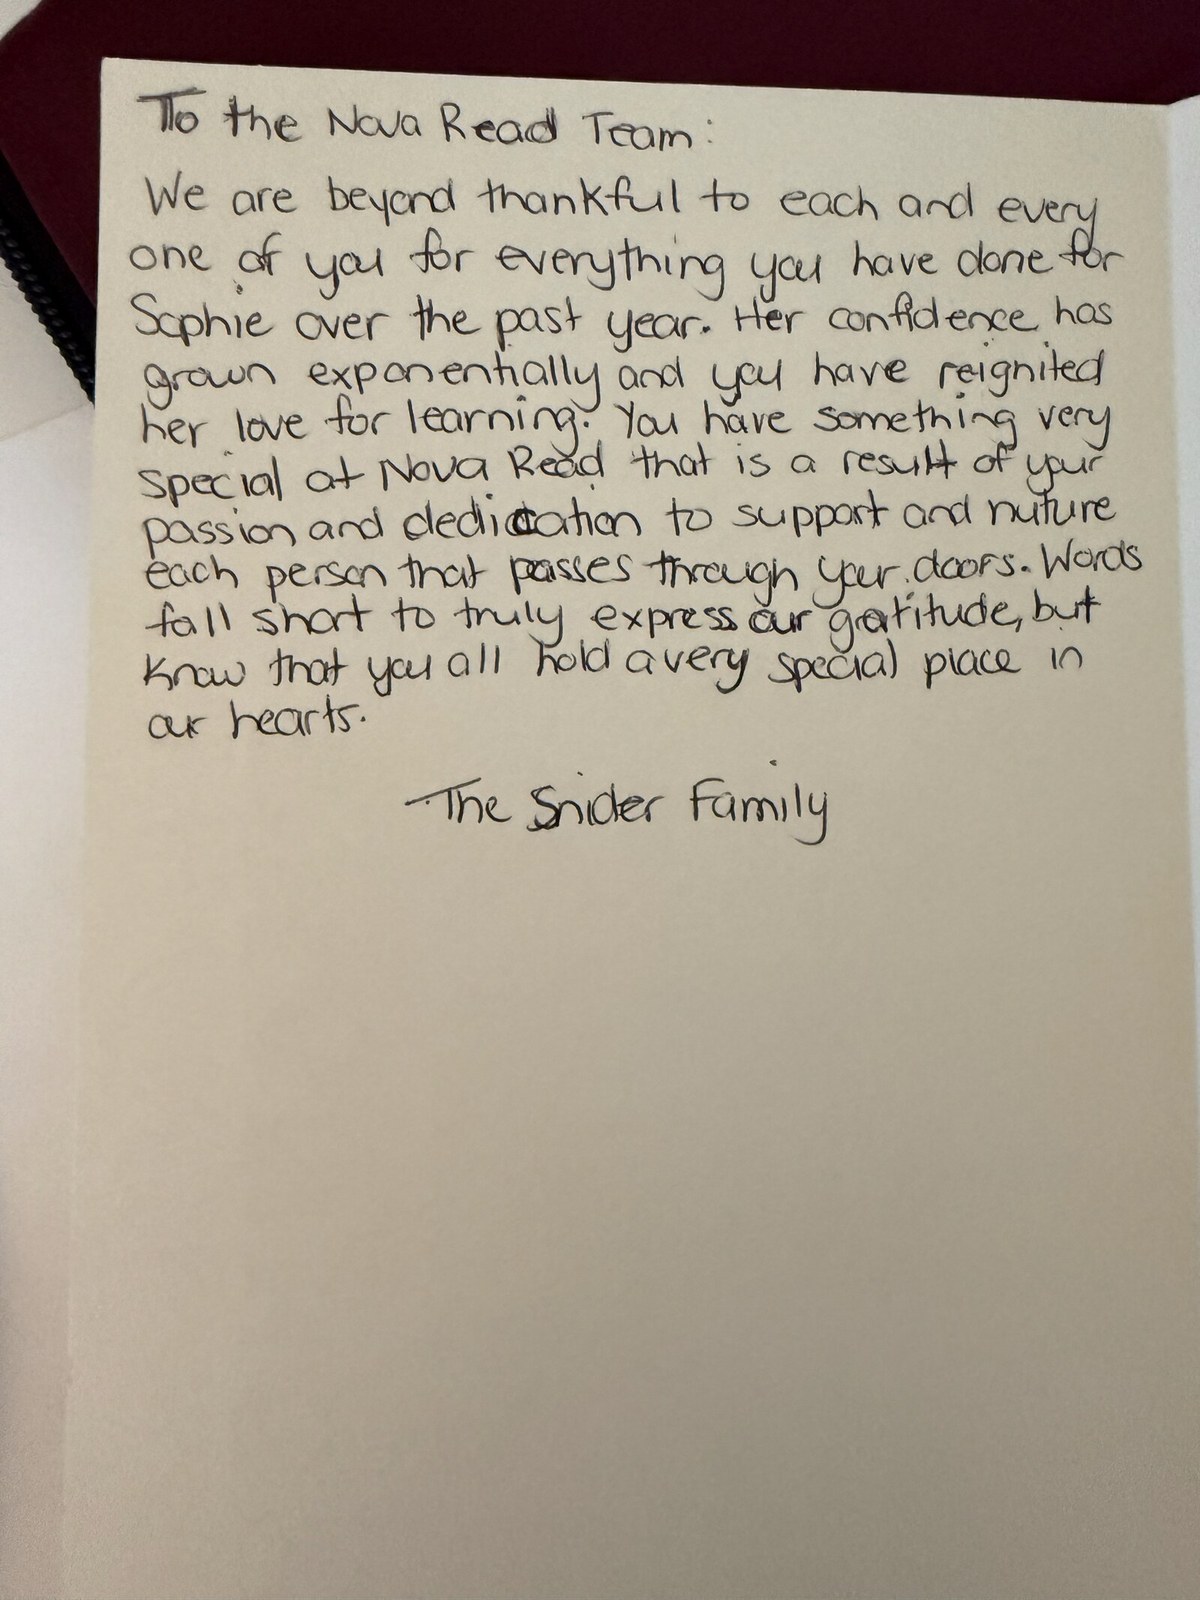 To the Nova Read Team:
We are beyond thankful to each and every
one of you for everything you have done for
Sophie over the past year. Her confidence has
grown exponentially and you have reignited
her love for learning. You have something very
special at Nova Read that is a result of your
passion and dedication to support and nuture
each person that passes through your doors. Words
fall short to truly express our gratitude, but
know that you all hold a very special place in
our hearts.
The Snider Family